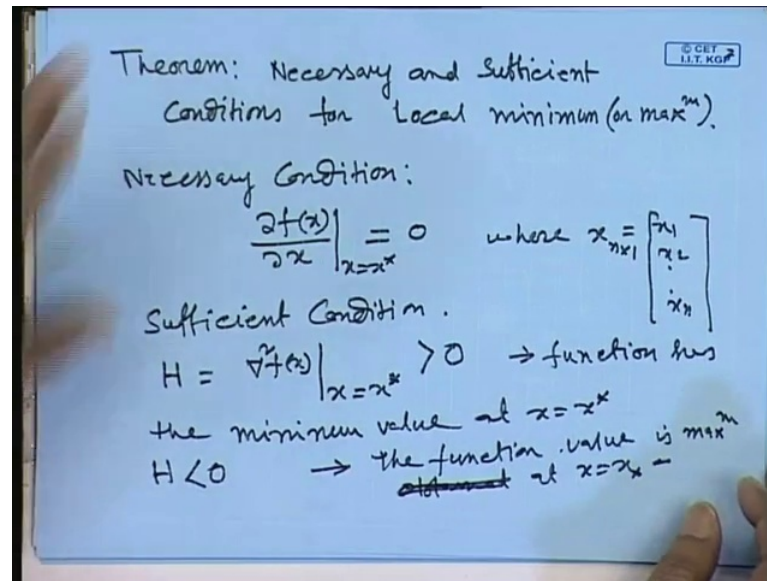 Theorem: Necessary and Sufficient
© CET
I.I.T. KGP
Conditions for Local minimum (or maxᵐ).
Necessary Condition:
∂f(x)/∂x |x=x* = 0 where x n×1 = [x1 x2 . . xn]
Sufficient Condition.
H = ∇²f(x) |x=x* > 0 → function has
the minimum value at x=x*
H < 0 → the function value is maxᵐ
at x=x*